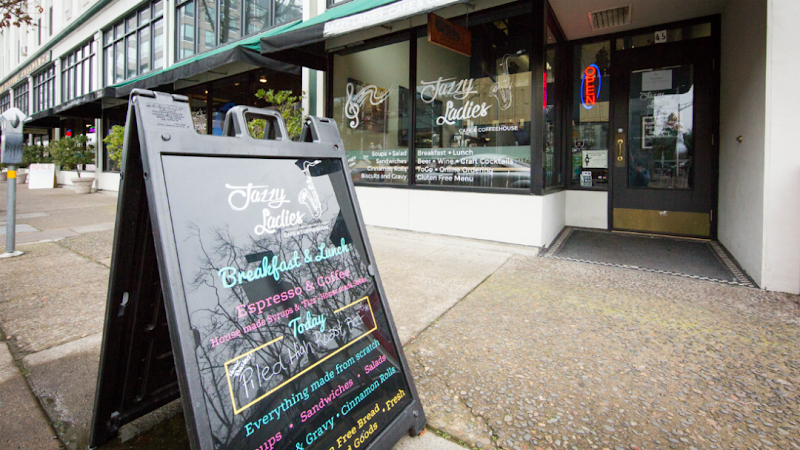 Jazzy
Ladies
Breakfast & Lunch
Espresso & Coffee
House made Syrups &
Today
Piled High Roast
Everything made from scratch
Soups • Sandwiches • Salads
& Gravy • Cinnamon Rolls
Free Bread • Fresh
Goods
Jazzy
Ladies
CAFE & COFFEEHOUSE
Soups • Salad
Sandwiches
Cinnamon Rolls
Biscuits and Gravy
Breakfast • Lunch
Beer • Wine • Craft Cocktails
ToGo • Online Ordering
Gluten Free Menu
OPEN
45